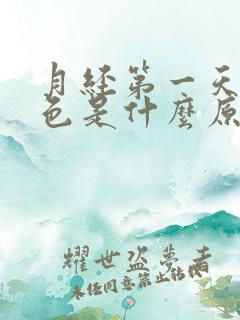 月经第一天
色是什麼原
耀世盗梦者
未经同意禁止转载